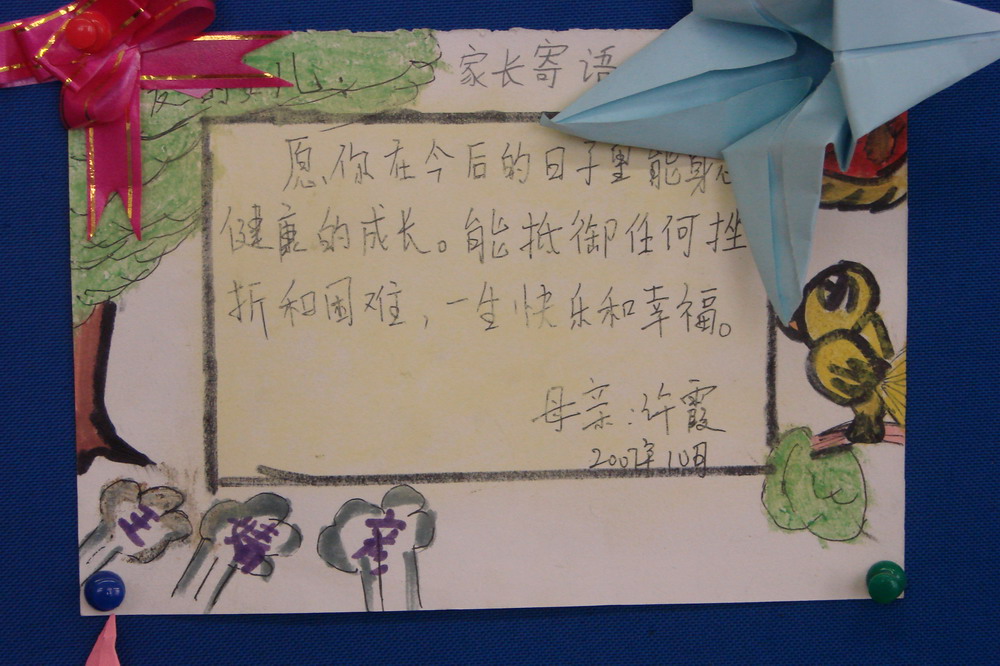 家长寄语
的女儿：
愿你在今后的日子里能身
健康的成长。能抵御任何挫
折和困难，一生快乐和幸福。
母亲：许霞
2007年10月
王